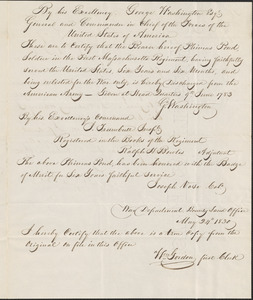 By his Excellency George Washington Esqr
General and Commander in Chief of the Forces of the
United States of America
These are to Certify that the Bearer hereof Phineas
Soldier in the First Massachusetts Regiment, having faithfully
served the United States, Six Years and Six Months, and
being enlisted for the War only, is hereby Discharged from the
American Army — Given at Head Quarters 9th June 1783
G Washington
By his Excellency's Command
J Trumbull Junr
Registered in the Books of the Regiment
Adjutant
The above Phineas has been honored with the Badge
of Merit for Six Years faithful Service
Joseph Vose Col.
War Department, Bounty Land Office
May 24th
I hereby Certify that the above is a true Copy from the
Original on file in this Office
Wm Gordon first Clerk